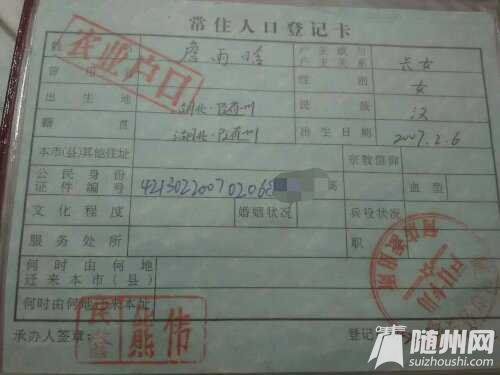 常住人口登记卡
农业户口
姓 詹雨
户主或与户主关系 长女
曾用名 性别 女
出生地 湖北·随州 民族 汉
籍贯 湖北·随州 出生日期 2007.2.6
本市(县)其他住址 宗教信仰
公民身份证件编号 42130220070206 身高 血型
文化程度 婚姻状况 兵役状况
服务处所 职
何时由何地迁来本市(县)
何时由何地迁来本址
承办人签章: 民警 熊伟 登记
户口专用
随州网
suizhoushi.com